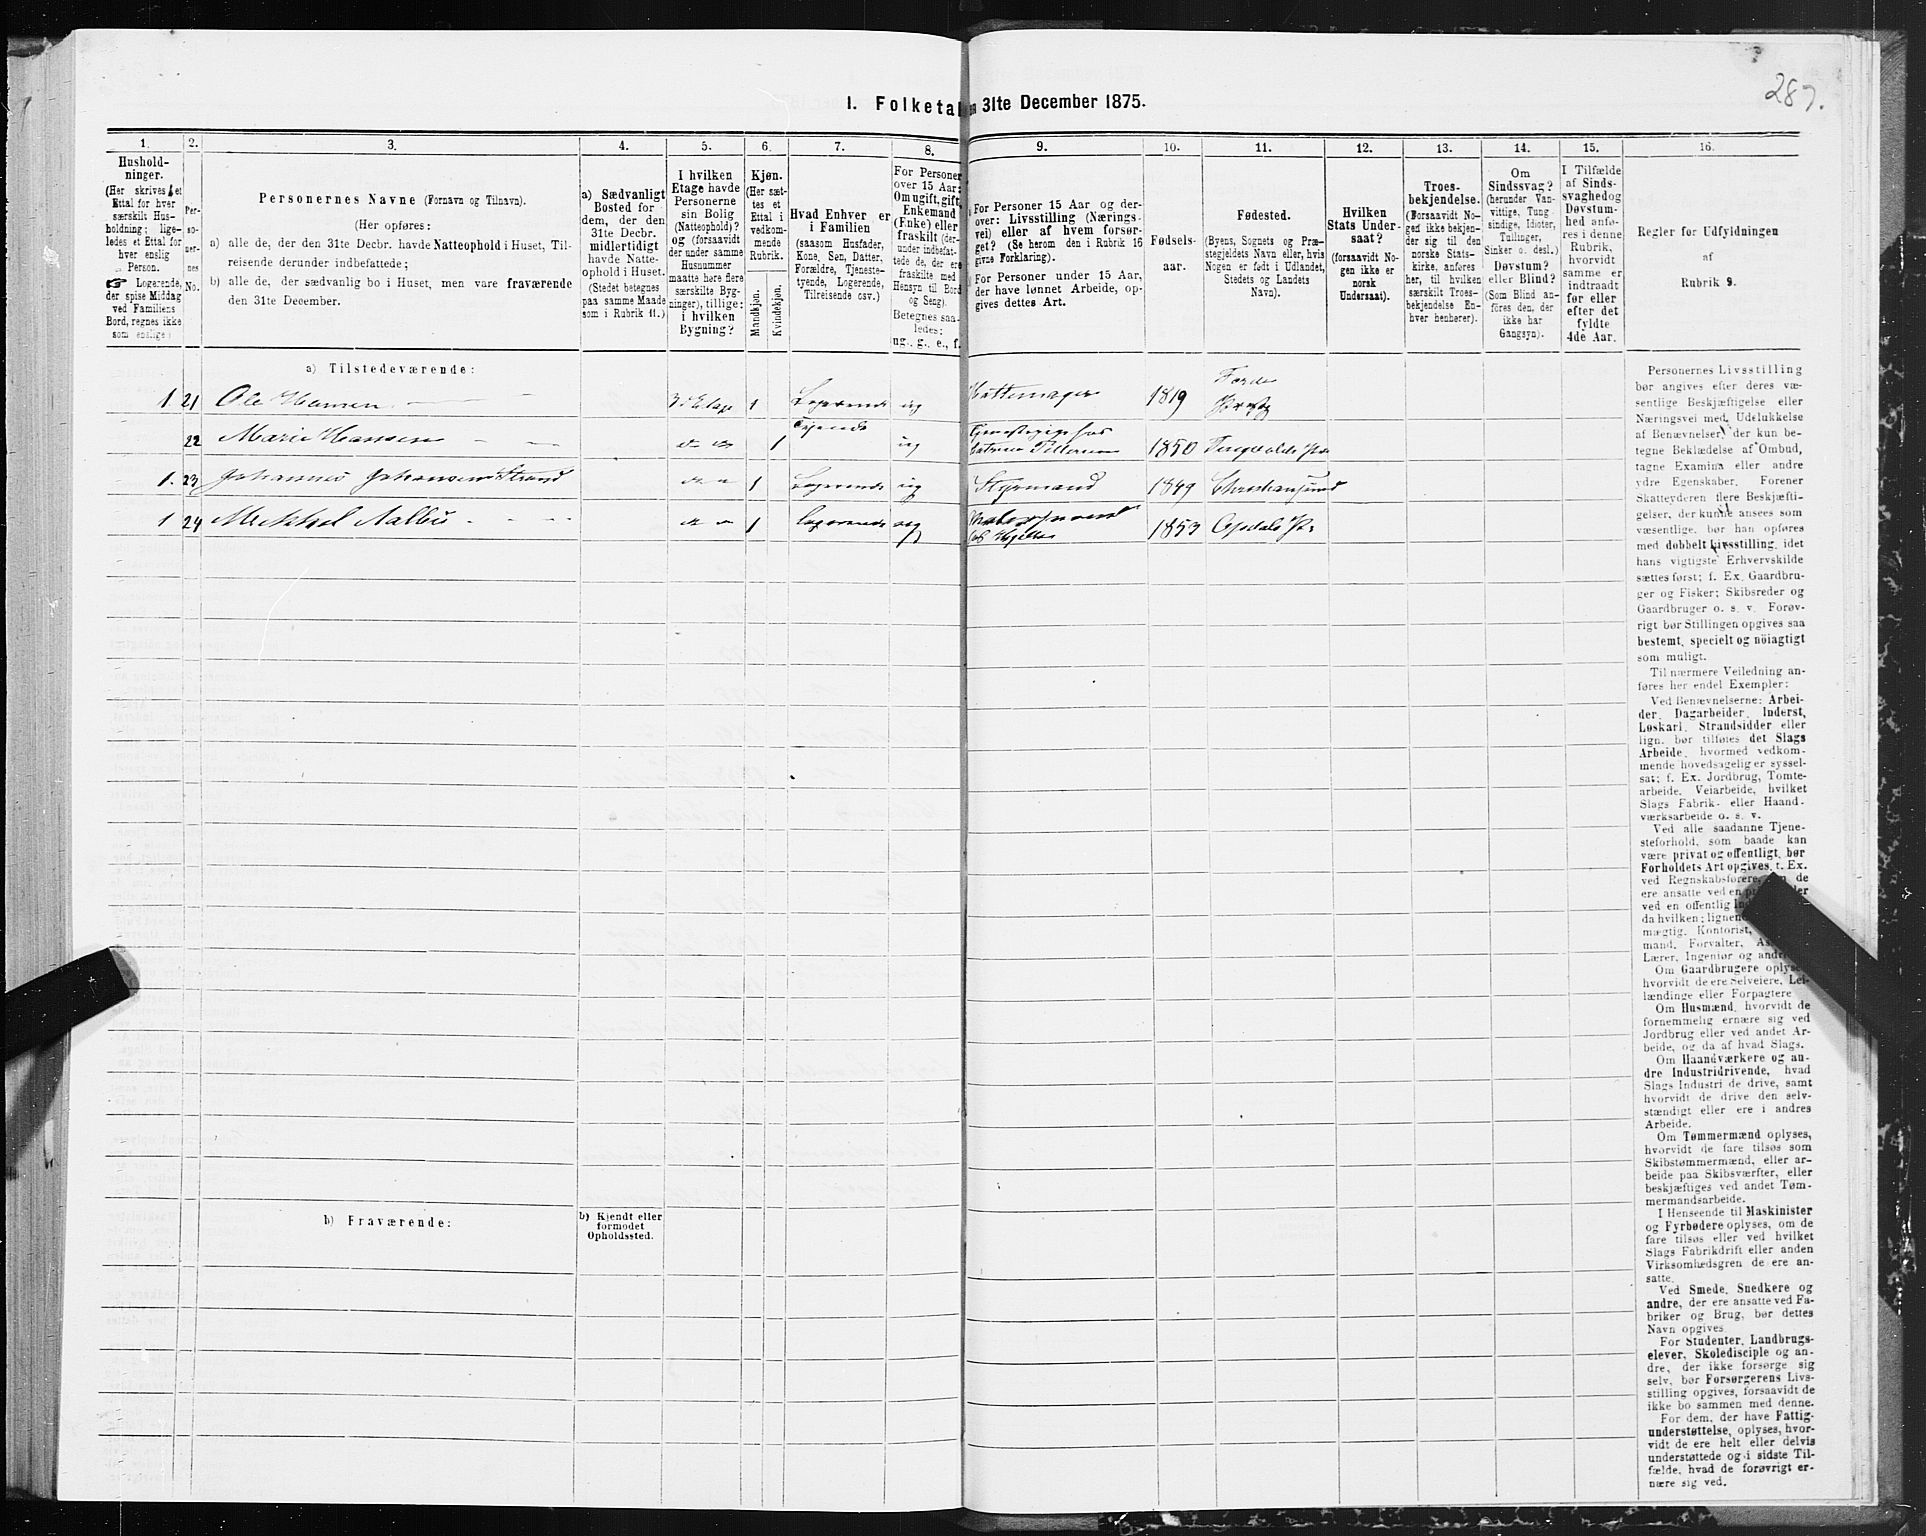 287.
I. Folketal
en 31te December 1875.
1.
2.
3.
4.
5.
6.
7.
8.
9.
10.
11.
12.
13.
14.
15.
16.
Hushold-
ninger.
(Her skrives et
Ettal for hver
særskilt Hus-
holdning; lige-
ledes et Ettal for
hver enslig
Person.
☞ Logerende,
der spise Middag
ved Familiens
Bord, regnes ikke
som enslige)
Per-
so-
ner-
nes
No.
Personernes Navne (Fornavn og Tilnavn).
(Her opføres:
a) alle de, der den 31te Decbr. havde Natteophold i Huset, Til-
reisende derunder indbefattede;
b) alle de, der sædvanlig bo i Huset, men vare fraværende
den 31te December.
a) Sædvanligt
Bosted for
dem, der den
31te Decbr.
midlertidigt
havde Natte-
ophold i Huset.
(Stedet betegnes
paa samme Maade
som i Rubrik 11.)
I hvilken
Etage havde
Personerne
sin Bolig
(Natteophold)?
og (forsaavidt
der under samme
Husnummer
maatte høre flere
særskilte Byg-
ninger), tillige:
i hvilken
Bygning?
Kjøn.
(Her sæt-
tes et
Ettal i
vedkom-
mende
Rubrik.
Mandkjøn.
Kvindekjøn.
Hvad Enhver er
i Familien
(saasom Husfader,
Kone, Søn, Datter,
Forældre, Tjeneste-
tyende, Logerende,
Tilreisende osv.)
For Personer
over 15 Aar:
Om ugift, gift,
Enkemand
(Enke) eller
fraskilt (der-
under indbefat-
tede de, der ere
fraskilte med
Hensyn til Bord
og Seng).
Betegnes saa-
ledes:
ug., g., e., f.
For Personer 15 Aar og der-
over: Livsstilling (Nærings-
vei) eller af hvem forsør-
get? (Se herom den i Rubrik 16
givne Forklaring).
For Personer under 15 Aar,
der have lønnet Arbeide, op-
gives dettes Art.
Fødsels-
aar.
Fødested.
(Byens, Sognets og Præ-
stegjeldets Navn eller, hvis
Nogen er født i Udlandet,
Stedets og Landets
Navn).
Hvilken
Stats Under-
saat?
(forsaavidt No-
gen ikke er
norsk
Undersaat).
Troes-
bekjendelse.
(Forsaavidt No-
gen ikke bekjen-
der sig til den
norske Stats-
kirke, anføres
her, til hvilken
særskilt Troes-
bekjendelse En-
hver henhører).
Om
Sindssvag?
(herunder Van-
vittige, Tung
sindige, Idioter,
Tullinger,
Sinker o. desl.)
Døvstum?
eller Blind?
(Som Blind an-
føres den, der
ikke har
Gangsyn).
I Tilfælde
af Sinds-
svaghed og
Døvstum-
hed anfø-
res i denne
Rubrik,
hvorvidt
samme er
indtraadt
før eller
efter det
fyldte
4de Aar.
Regler for Udfyldningen
af
Rubrik 9.
a) Tilstedeværende:
1. 21 Ole Hansen 3die Etage 1 Logerende ug Hattemager 1819 Førde Præstg
22 Marie Hansen do do 1 Tyende ug Tjenestepige hos 1850
1. 23 Johannes Johansen Strand do do 1 Logerende ug Styrmand 1849 Christiansund
1 24 Mikkel Aalbu do do 1 Logerende ug 1853 Opdals Pr.
b) Fraværende:
b) Kjendt eller
formodet
Opholdssted.
Personernes Livsstilling
bør angives efter deres væ-
sentlige Beskjæftigelse eller
Næringsvei med Udelukkelse
af Benævnelser, der kun be-
tegne Beklædelse af Ombud,
tagne Examina eller andre
ydre Egenskaber. Forener
Skatteyderen flere Beskjæfti-
gelser, der kunne ansees som
væsentlige, bør han opføres
med dobbelt Livsstilling, idet
hans vigtigste Erhvervskilde
sættes først; f. Ex. Gaardbru-
ger og Fisker; Skibsreder og
Gaardbruger o. s. v. Forøv-
rigt bør Stillingen opgives saa
bestemt, specielt og nöiagtigt
som muligt.
Til nærmere Veiledning an-
føres her endel Exempler:
Ved Benævnelserne: Arbei-
der, Dagarbeider, Inderst,
Løskarl, Strandsidder eller
lign. bør tilføies det Slags
Arbeide, hvormed vedkom-
mende hovedsagelig er syssel-
sat; f. Ex. Jordbrug, Tomte-
arbeide, Veiarbeide, hvilket
Slags Fabrik- eller Haand-
værksarbeide o. s. v.
Ved alle saadanne Tjene-
steforhold, som baade kan
være privat og offentligt, bør
Forholdets Art opgives, f. Ex.
ved Regnskabsførere, de
ere ansatte ved en
ved en offentlig
da hvilken;
mægtig, Kontorist,
mand, Forvalter,
Lærer, Ingeniør og
Om Gaardbrugere
hvorvidt de ere Selveiere, Lei-
lændinge eller Forpagtere
Om Husmænd, hvorvidt de
fornemmelig ernære sig ved
Jordbrug eller ved andet Ar-
beide, og da af hvad Slags.
Om Haandværkere og an-
dre Industridrivende, hvad
Slags Industri de drive, samt
hvorvidt de drive den selv-
stændigt eller ere i andres
Arbeide.
Om Tømmermænd oplyses,
hvorvidt de fare tilsøs som
Skibstømmermænd, eller ar-
beide paa Skibsværfter, eller
beskjæftiges ved andet Tøm-
mermandsarbeide.
I Henseende til Maskinister
og Fyrbødere oplyses, om de
fare tilsøs eller ved hvilket
Slags Fabrikdrift eller anden
Virksomhedsgren de ere an-
satte.
Ved Smede, Snedkere og
andre, der ere ansatte ved Fa-
briker og Brug, bør dettes
Navn opgives.
For Studenter, Landbrugs-
elever, Skoledisciple og an-
dre, der ikke forsørge sig
selv, bør Forsørgerens Livs-
stilling opgives, forsaavidt de
ikke bo sammen med denne.
For dem, der have Fattig-
understøttelse, oplyses, hvor-
vidt de ere helt eller delvis
understøttede og i sidste Til-
fælde, hvad de forøvrigt er-
nære sig ved.